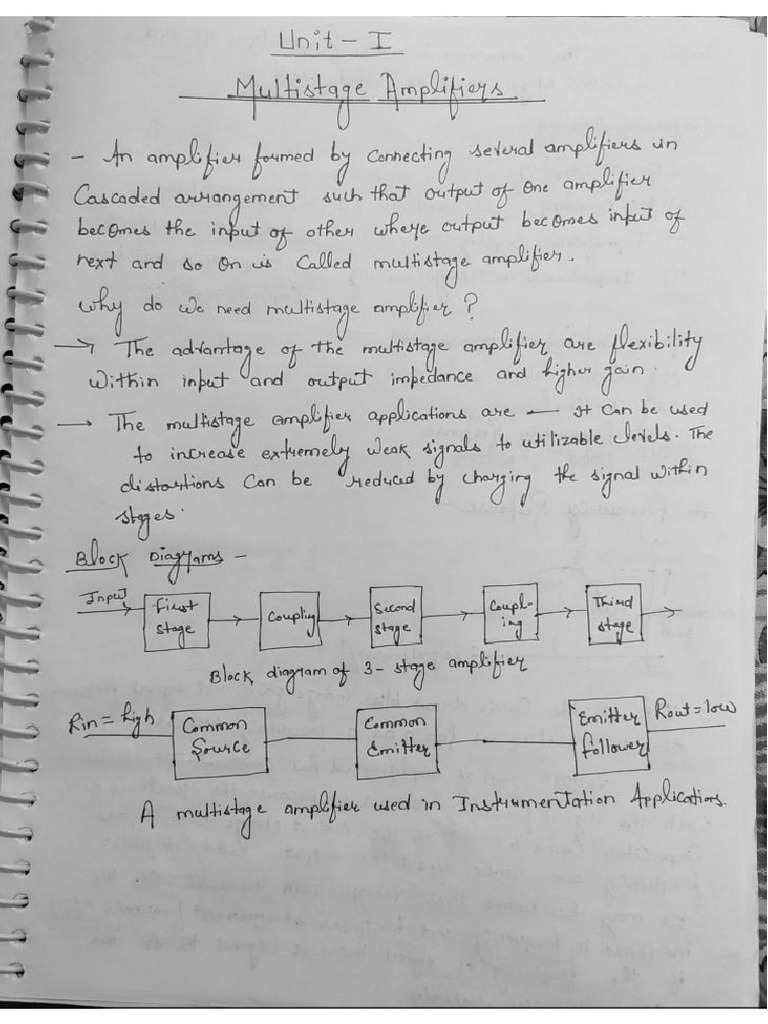 Unit - I
Multistage Amplifiers
- An amplifier formed by connecting several amplifiers in
Cascaded arrangement such that output of one amplifier
becomes the input of other whose output becomes input of
next and so on is called multistage amplifier.
Why do we need multistage amplifier?
→ The advantage of the multistage amplifier are flexibility
within input and output impedance and higher gain.
→ The multistage amplifier applications are — It can be used
to increase extremely weak signals to utilizable levels. The
distortions can be reduced by changing the signal within
stages.
Block Diagrams -
Input
First stage
Coupling
Second stage
Coupl-ing
Third stage
Block diagram of 3- stage amplifier
Rin = high
Common Source
Common Emitter
Emitter follower
Rout = low
A multistage amplifier used in Instrumentation Applications.